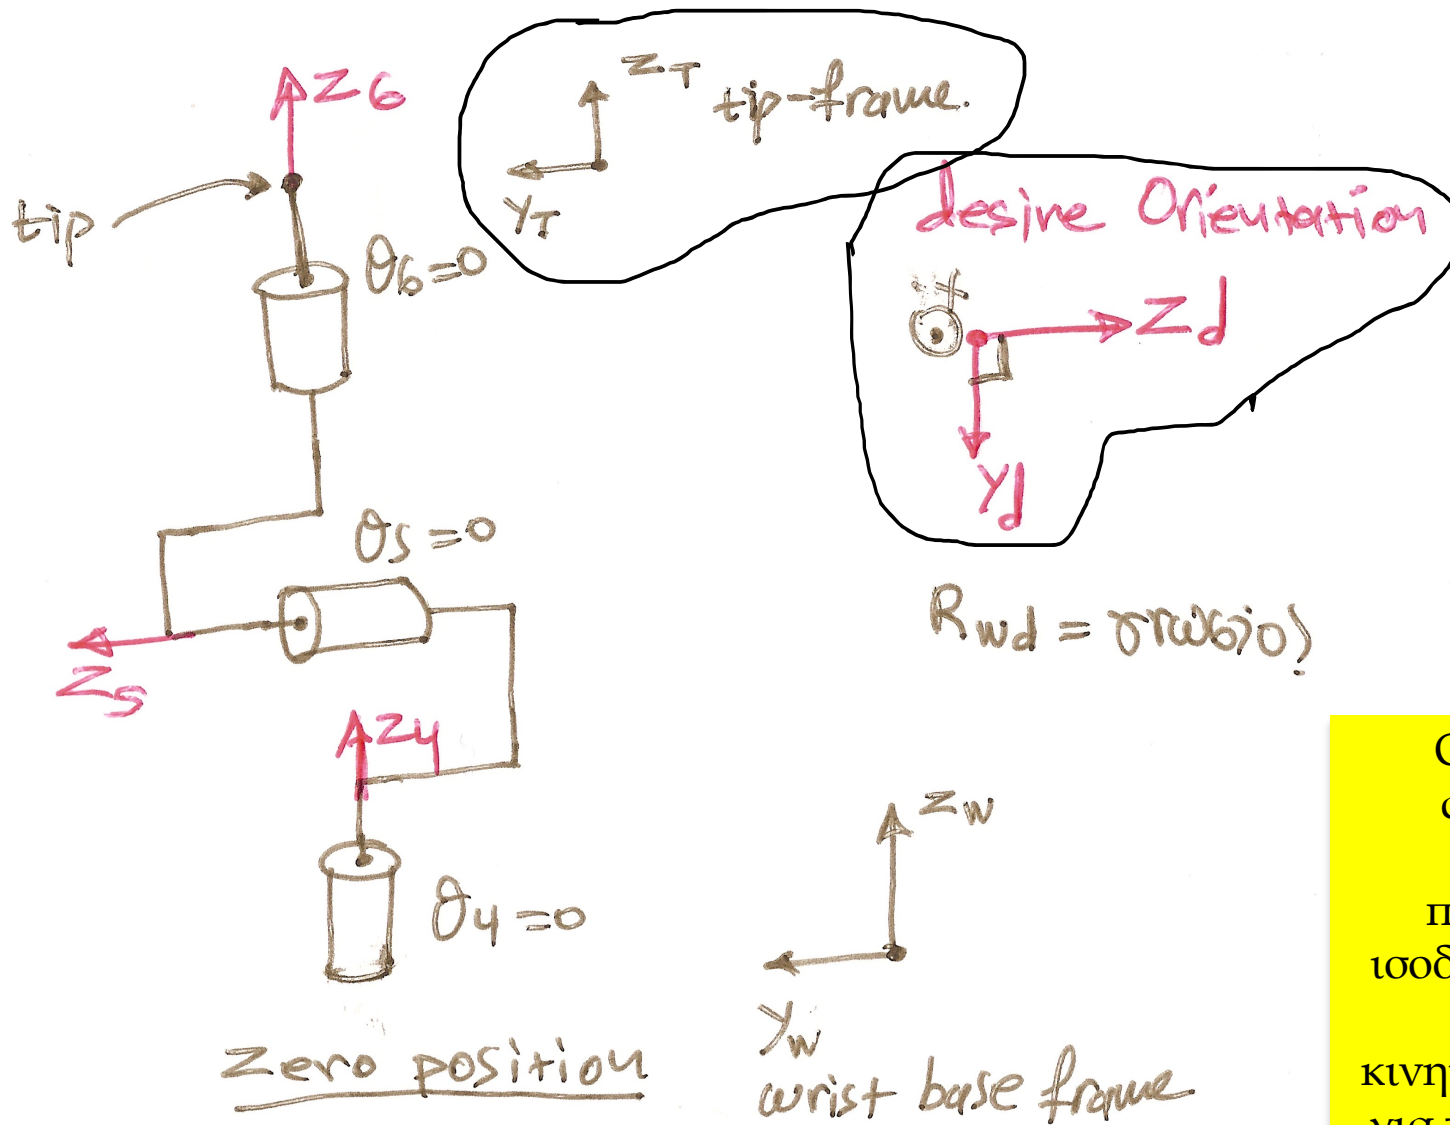 Z6
tip
θ6=0
ZT
tip-frame.
YT
desire Orientation
x
Zd
Yd
θ5=0
Z5
Rwd = γνωστό?
Z4
θ4=0
Zw
Yw
wrist base frame
Zero position
π
ισοδ
κινη
για